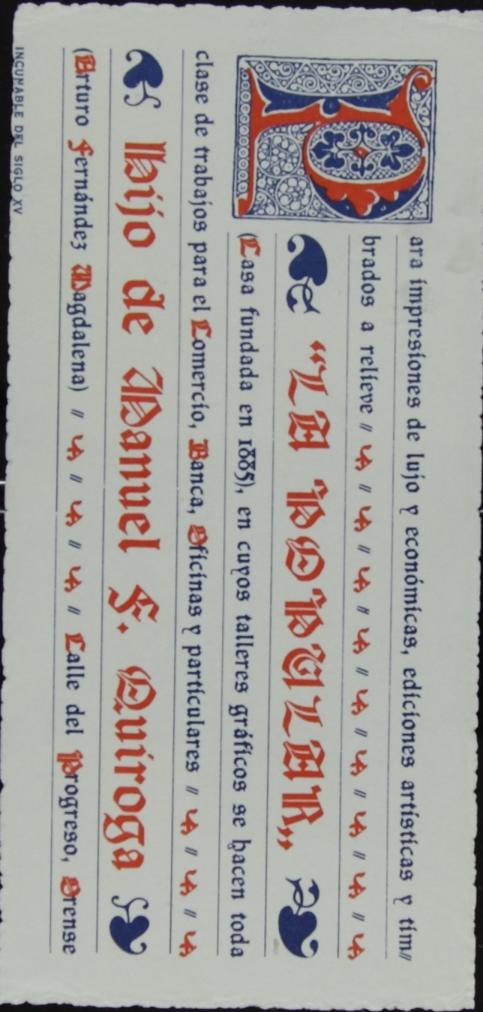 Para impresiones de lujo y económicas, ediciones artísticas y tim//
brados a relieve // // // // // // // // //
"LA POPULAR„
(Casa fundada en 1885), en cuyos talleres gráficos se hacen toda
clase de trabajos para el Comercio, Banca, Oficinas y particulares // // //
Hijo de Manuel F. Quiroga
(Arturo Fernández Magdalena) // // // // Calle del Progreso, Orense
INCUNABLE DEL SIGLO XV